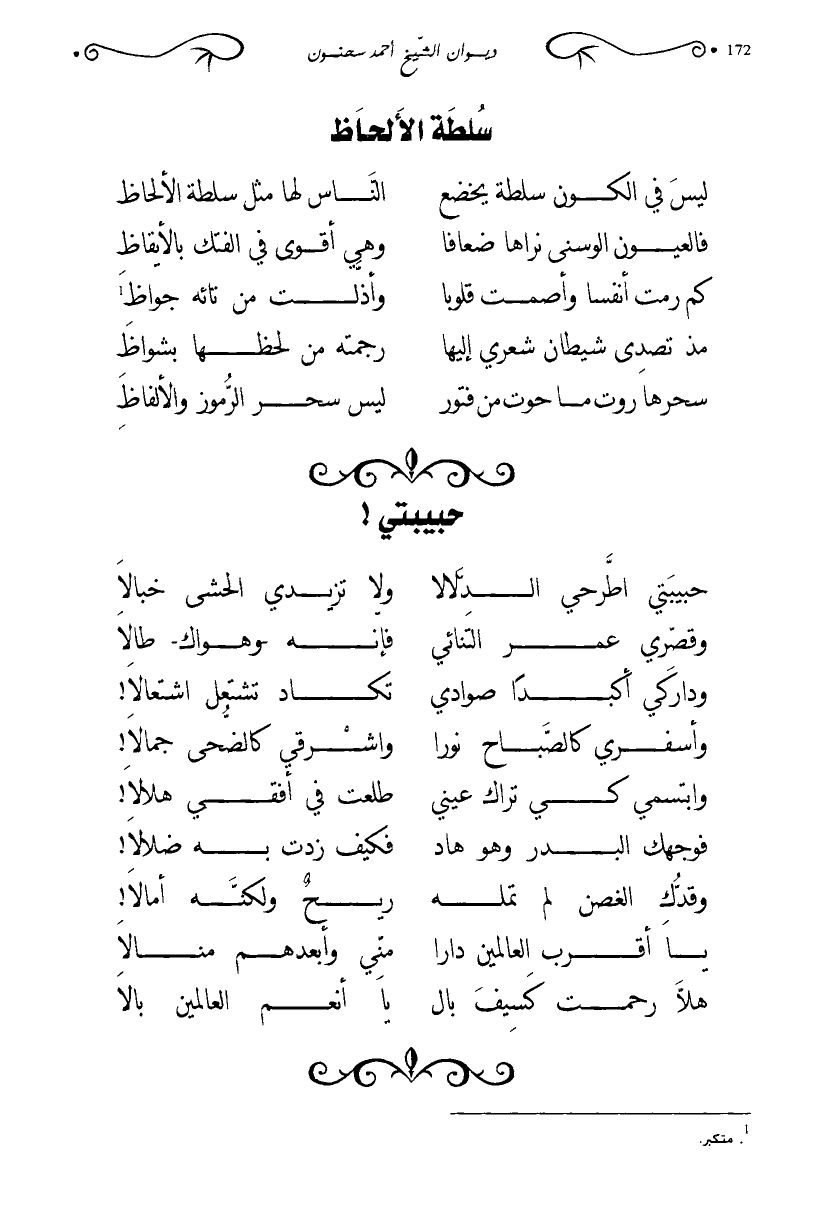 172 ديوان الشّيخ أحمد سحنون
سُلطَة الألحاَظ
ليسَ في الكون سلطة يخضع النَّاس لها مثل سلطة الألحاظِ
فالعيون الوسنى نراها ضعافا وهي أقوى في الفتك بالأيقاظِ
كم رمت أنفسا وأصمت قلوبا وأذلّت من تائه جواظِ1
مذ تصدى شيطان شعري إليها رجمته من لحظها بشواظِ
سحرها روت ما حوت من فتور ليس سحر الرُّموز والألفاظِ
حبيبتي !
حبيبَتي اطَّرحي الدلالاَ ولا تزيدي الحشى خبالاَ
وقصّري عمر التنائي فإنه -وهواك- طالاَ
وداركي أكبدًا صوادي تكاد تشتعل اشتعالاَ!
وأسفري كالصَّباح نورا واشْرقي كالضُّحى جمالاَ!
وابتسمي كي تراك عيني طلعت في أفقي هلالاَ!
فوجهك البدر وهو هاد فكيف زدت به ضلالاَ!
وقدُّك الغصن لم تمله ريحٌ ولكنَّه أمالاَ!
يا أقرب العالمين دارا منّي وأبعدهم منالاَ
هلاَّ رحمت كَسِيفَ بال يا أنعم العالمين بالاَ
1. متكبر.